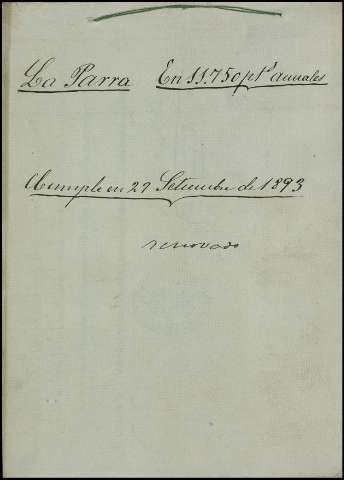 La Parra En 11.750 pts anuales
Cumple en 29 Setiembre de 1893
renovado